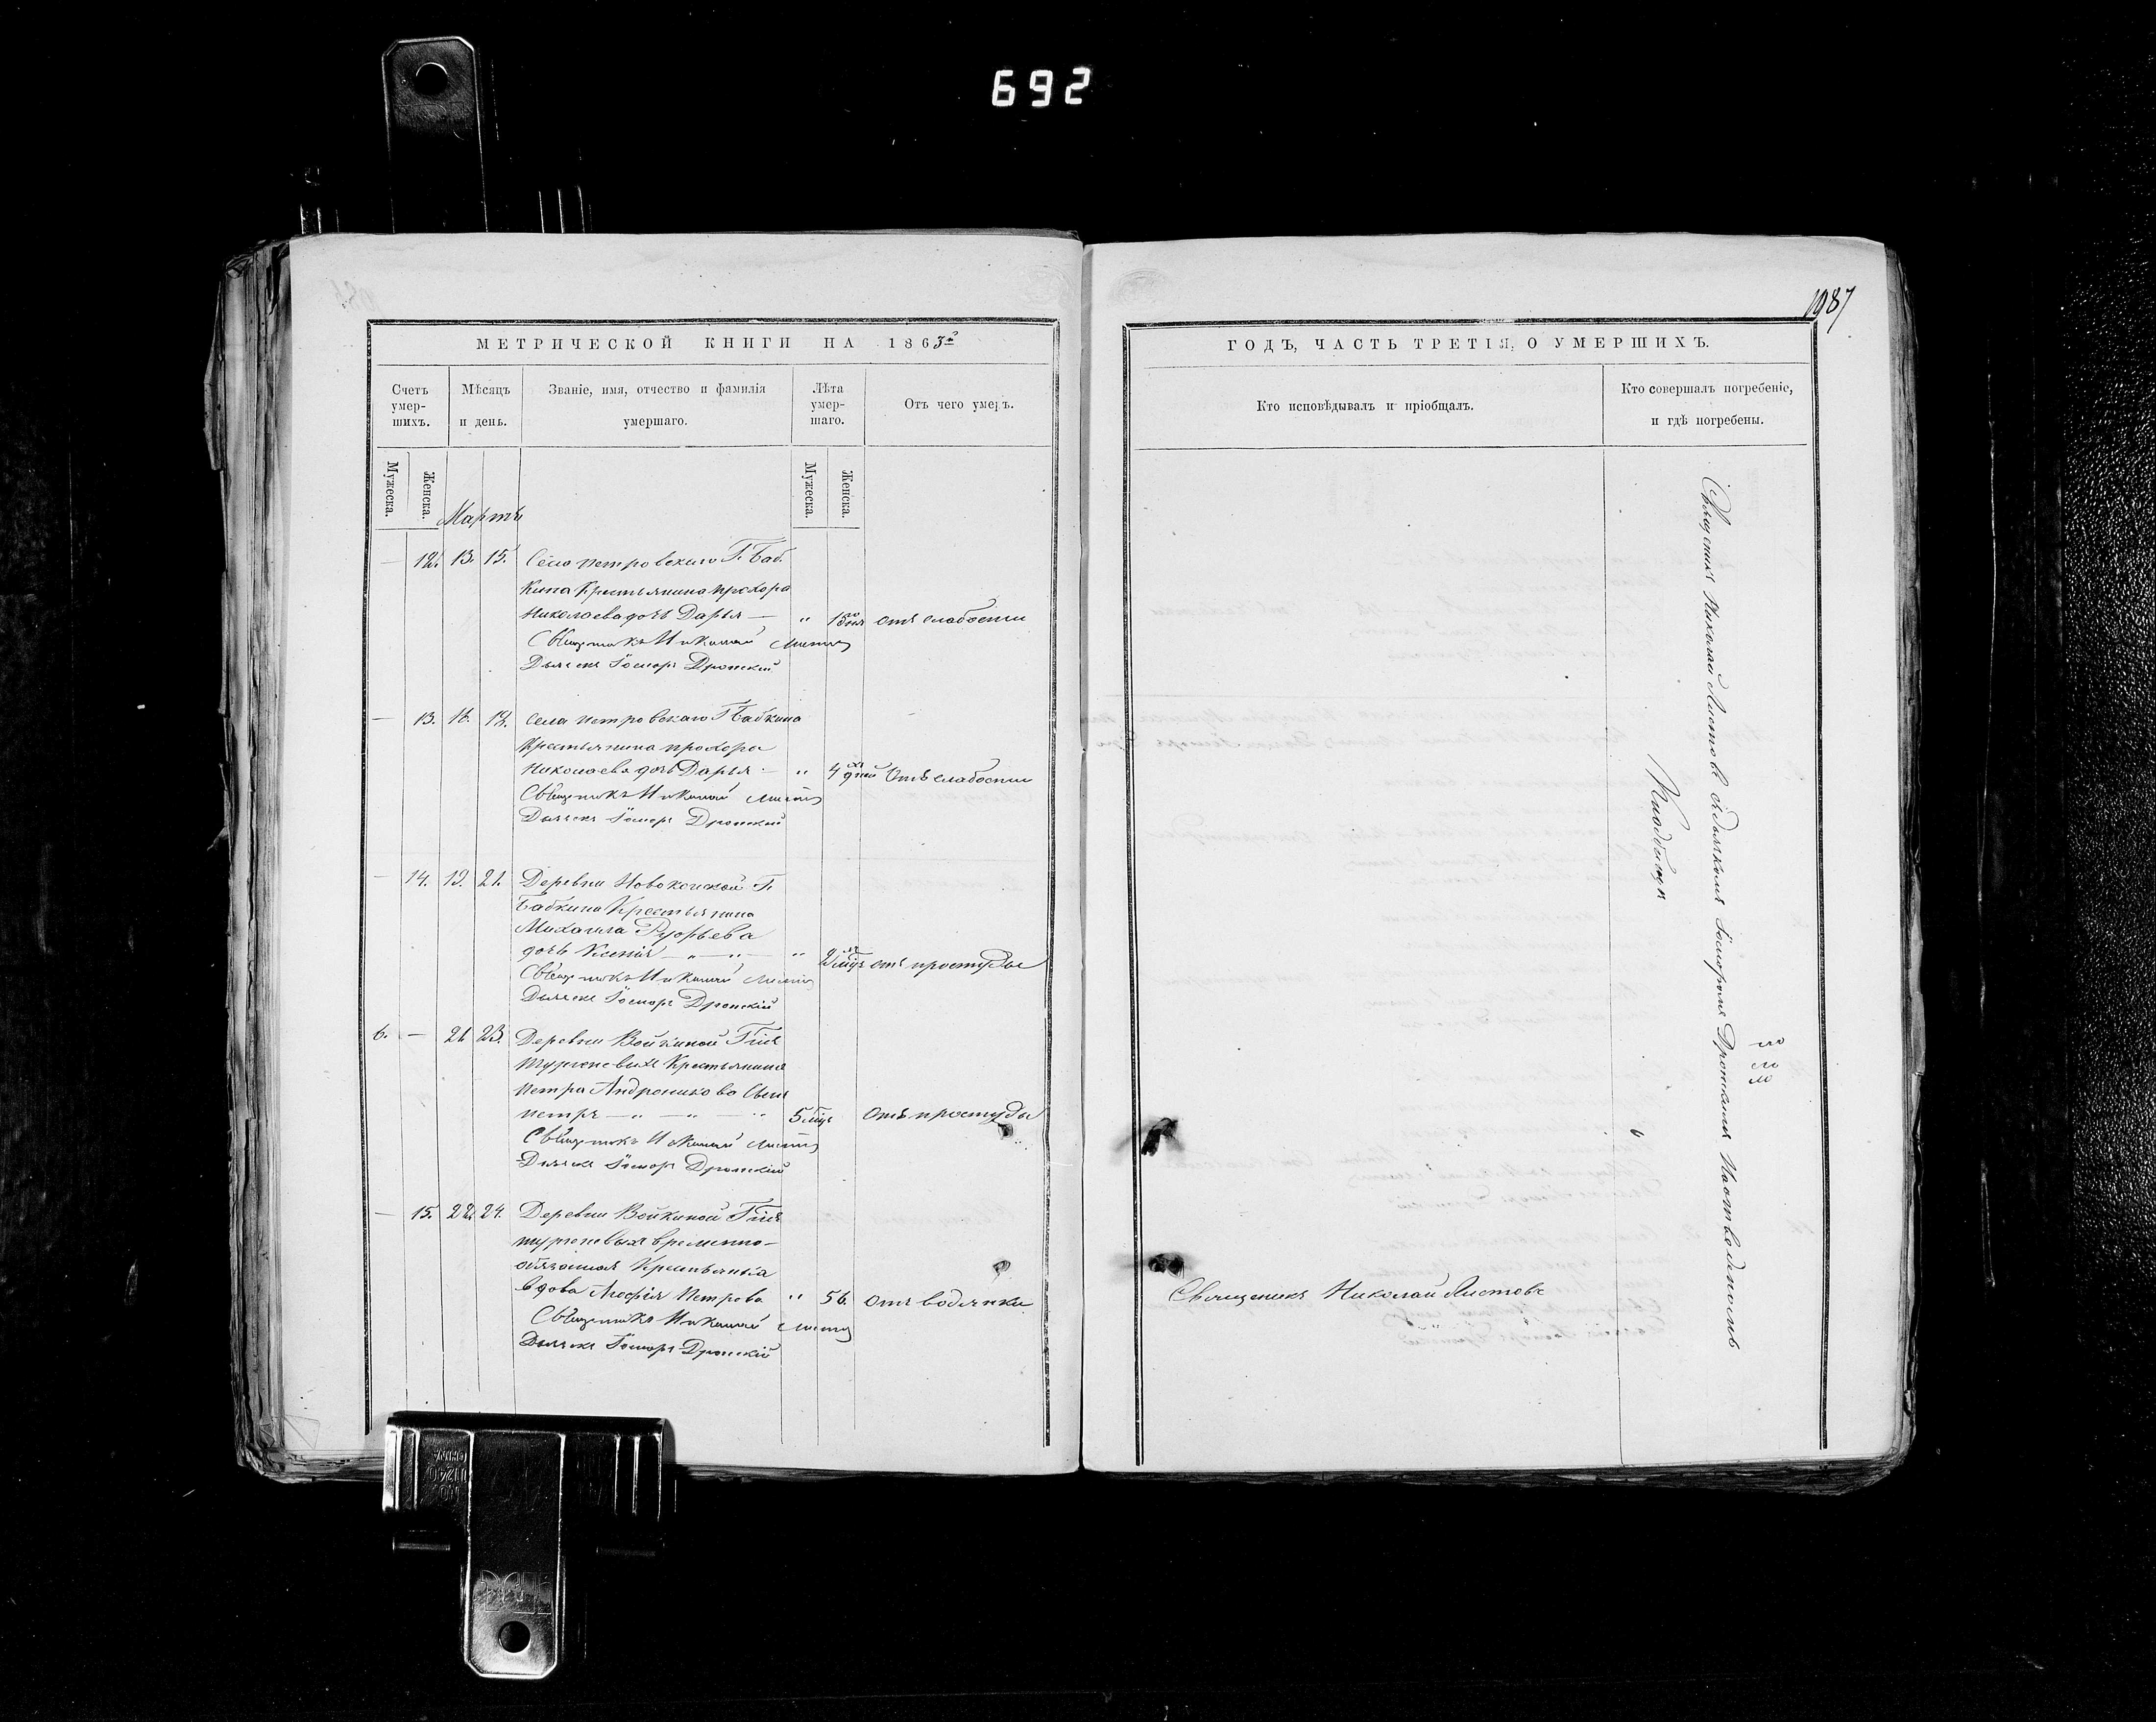 692
1087
МЕТРИЧЕСКОЙ КНИГИ НА 1863й
Счетъ умер-шихъ.
Мѣсяцъ и день.
Званіе, имя, отчество и фамилія умершаго.
Лѣта умер-шаго.
Отъ чего умеръ.
Мужеска.
Женска.
Мужеска.
Женска.
Мартъ
— 12. 13. 15. Села Петровскаго Г. Баб.
кина Крестьянина Прохора
Николаева дочь Дарья — „ отъ слабости
Священникъ Николай Листовъ
Дьячекъ Дронскій
— 13. 16. 18. Села Петровскаго Г Бабкина
Крестьянина Прохора
Николаева дочь Дарья — „ 4 дней Отъ слабости
Священникъ Николай Листовъ
Дьячекъ Дронскій
— 14. 19. 21. Деревни Г.
Бабкина Крестьянина
Михаила
дочь Ксенія — „ — „ — „ отъ простуды
Священникъ Николай Листовъ
Дьячекъ Дронскій
6. — 21 23. Деревни Войкиной
Тургеневыхъ Крестьянина
Петра Андроникова сынъ
Петръ — „ — „ — „ 5 мѣс Отъ простуды
Священникъ Николай Листовъ
Дьячекъ Дронскій
— 15. 22. 24. Деревни Войкиной
Тургеневыхъ временно-
обязанная Крестьянка
вдова Петрова „ 56. Отъ водянки
Священникъ Николай Листовъ
Дьячекъ Дронскій
ГОДЪ, ЧАСТЬ ТРЕТІЯ, О УМЕРШИХЪ.
Кто исповѣдывалъ и пріобщалъ.
Кто совершалъ погребеніе,
и гдѣ погребены.
Священникъ Николай Листовъ
Священникъ Николай Листовъ съ дьячкомъ Дронскимъ на отведенномъ
Кладбищѣ